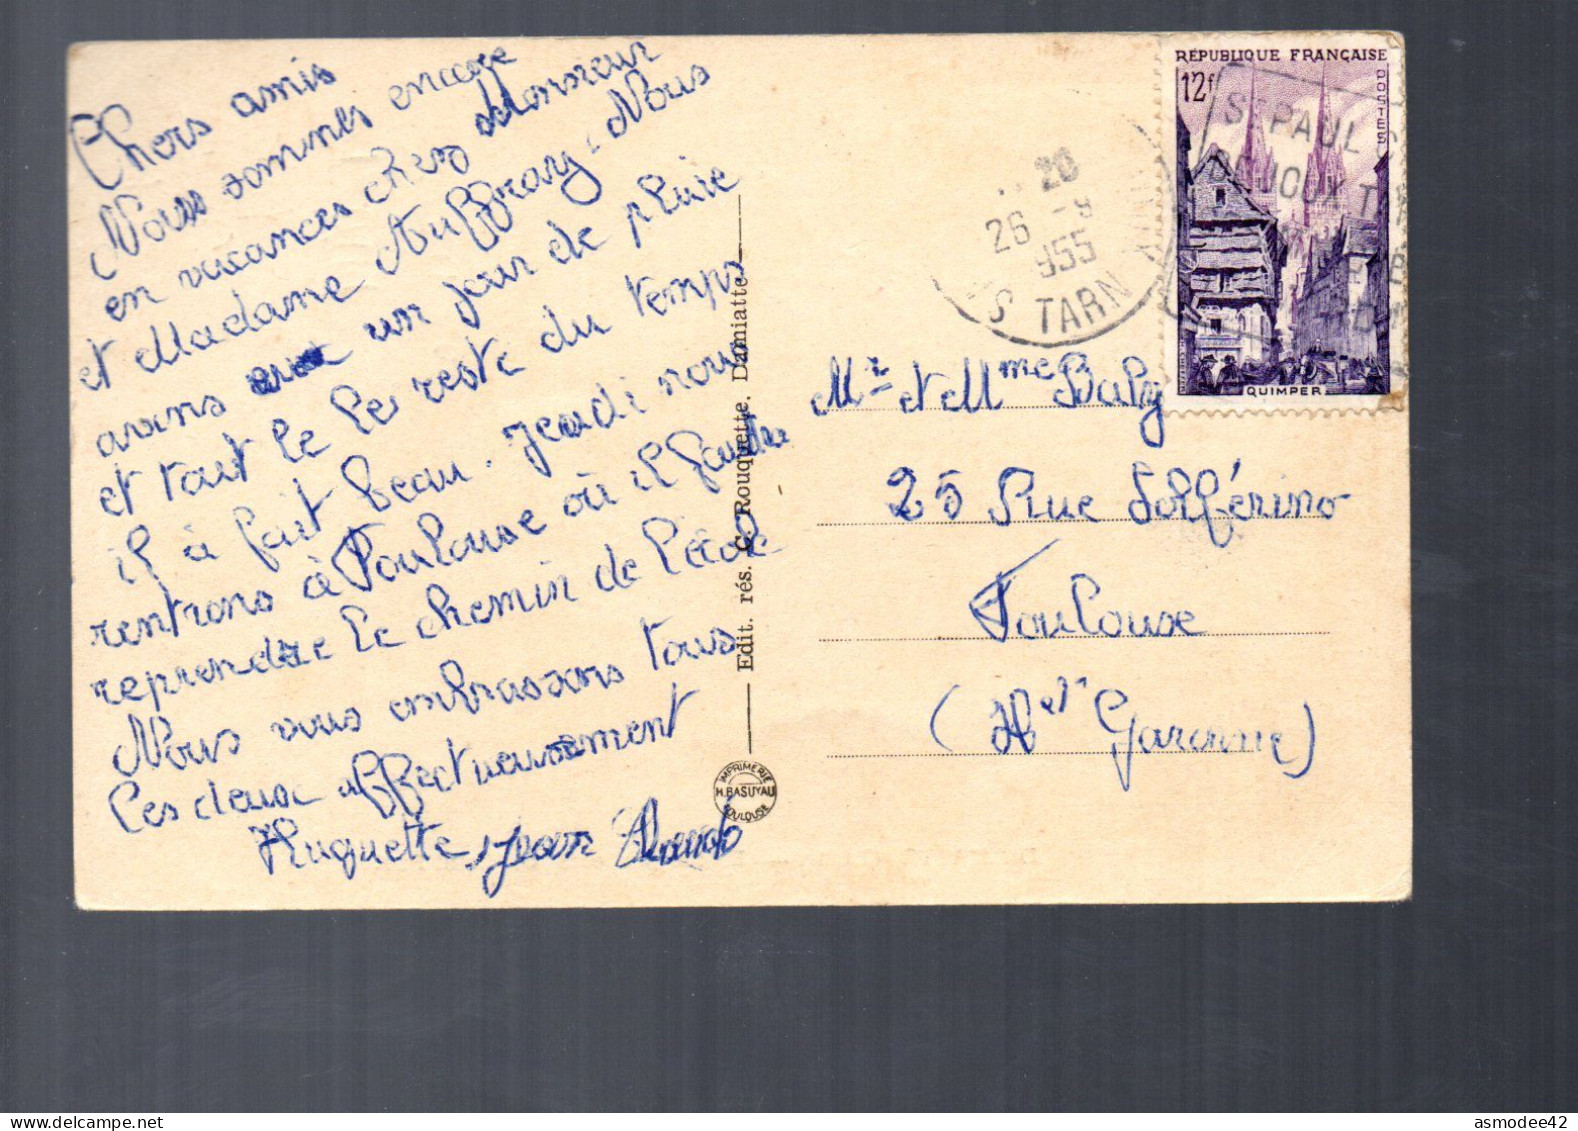 Chers amis
Nous sommes encore
en vacances chez Monsieur
et Madame Auffray. Nous
avons un jour de pluie
et tout le reste du temps
il à fait beau. Jeudi nous
rentrons à Toulouse où il faudra
reprendre le chemin de l'école
Nous vous embrassons tous
Les deux affectueusement
Huguette, Jean
Edit. rés. G. Rouquette, Damiatte
IMPRIMERIE
H. BASUYAU
TOULOUSE
RÉPUBLIQUE FRANÇAISE
12f
POSTES
QUIMPER
ST PAUL
DE JOUX T
20
26 -9
955
TARN
Mr et Mme
25 Rue Solférino
Toulouse
(Hte Garonne)
asmodee42
www.delcampe.net